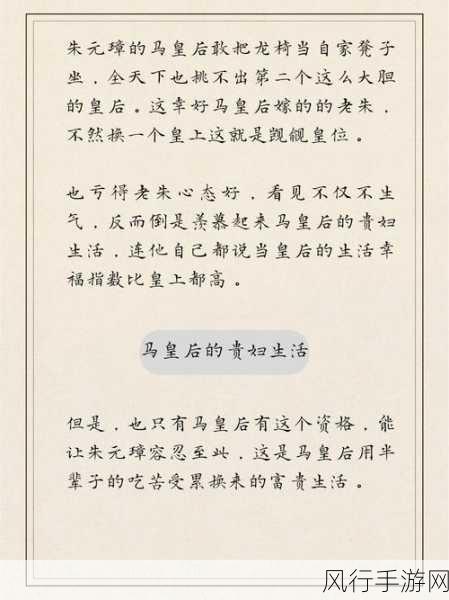 朱元璋的马皇后敢把龙椅当自家凳子
坐，全天下也挑不出第二个这么大胆
的皇后。这幸好马皇后嫁的的老朱，
不然换一个皇上这就是觊觎皇位。
也亏得老朱心态好，看见不仅不生
气，反而倒是羡慕起来马皇后的貴妇
生活，连他自己都说当皇后的生活幸
福指数比皇上都高。
马皇后的贵妇生活
但是，也只有马皇后有这个资格，能
让朱元璋容忍至此，这是马皇后用半
辈子的吃苦受累换来的富贵生活。
风行手游网